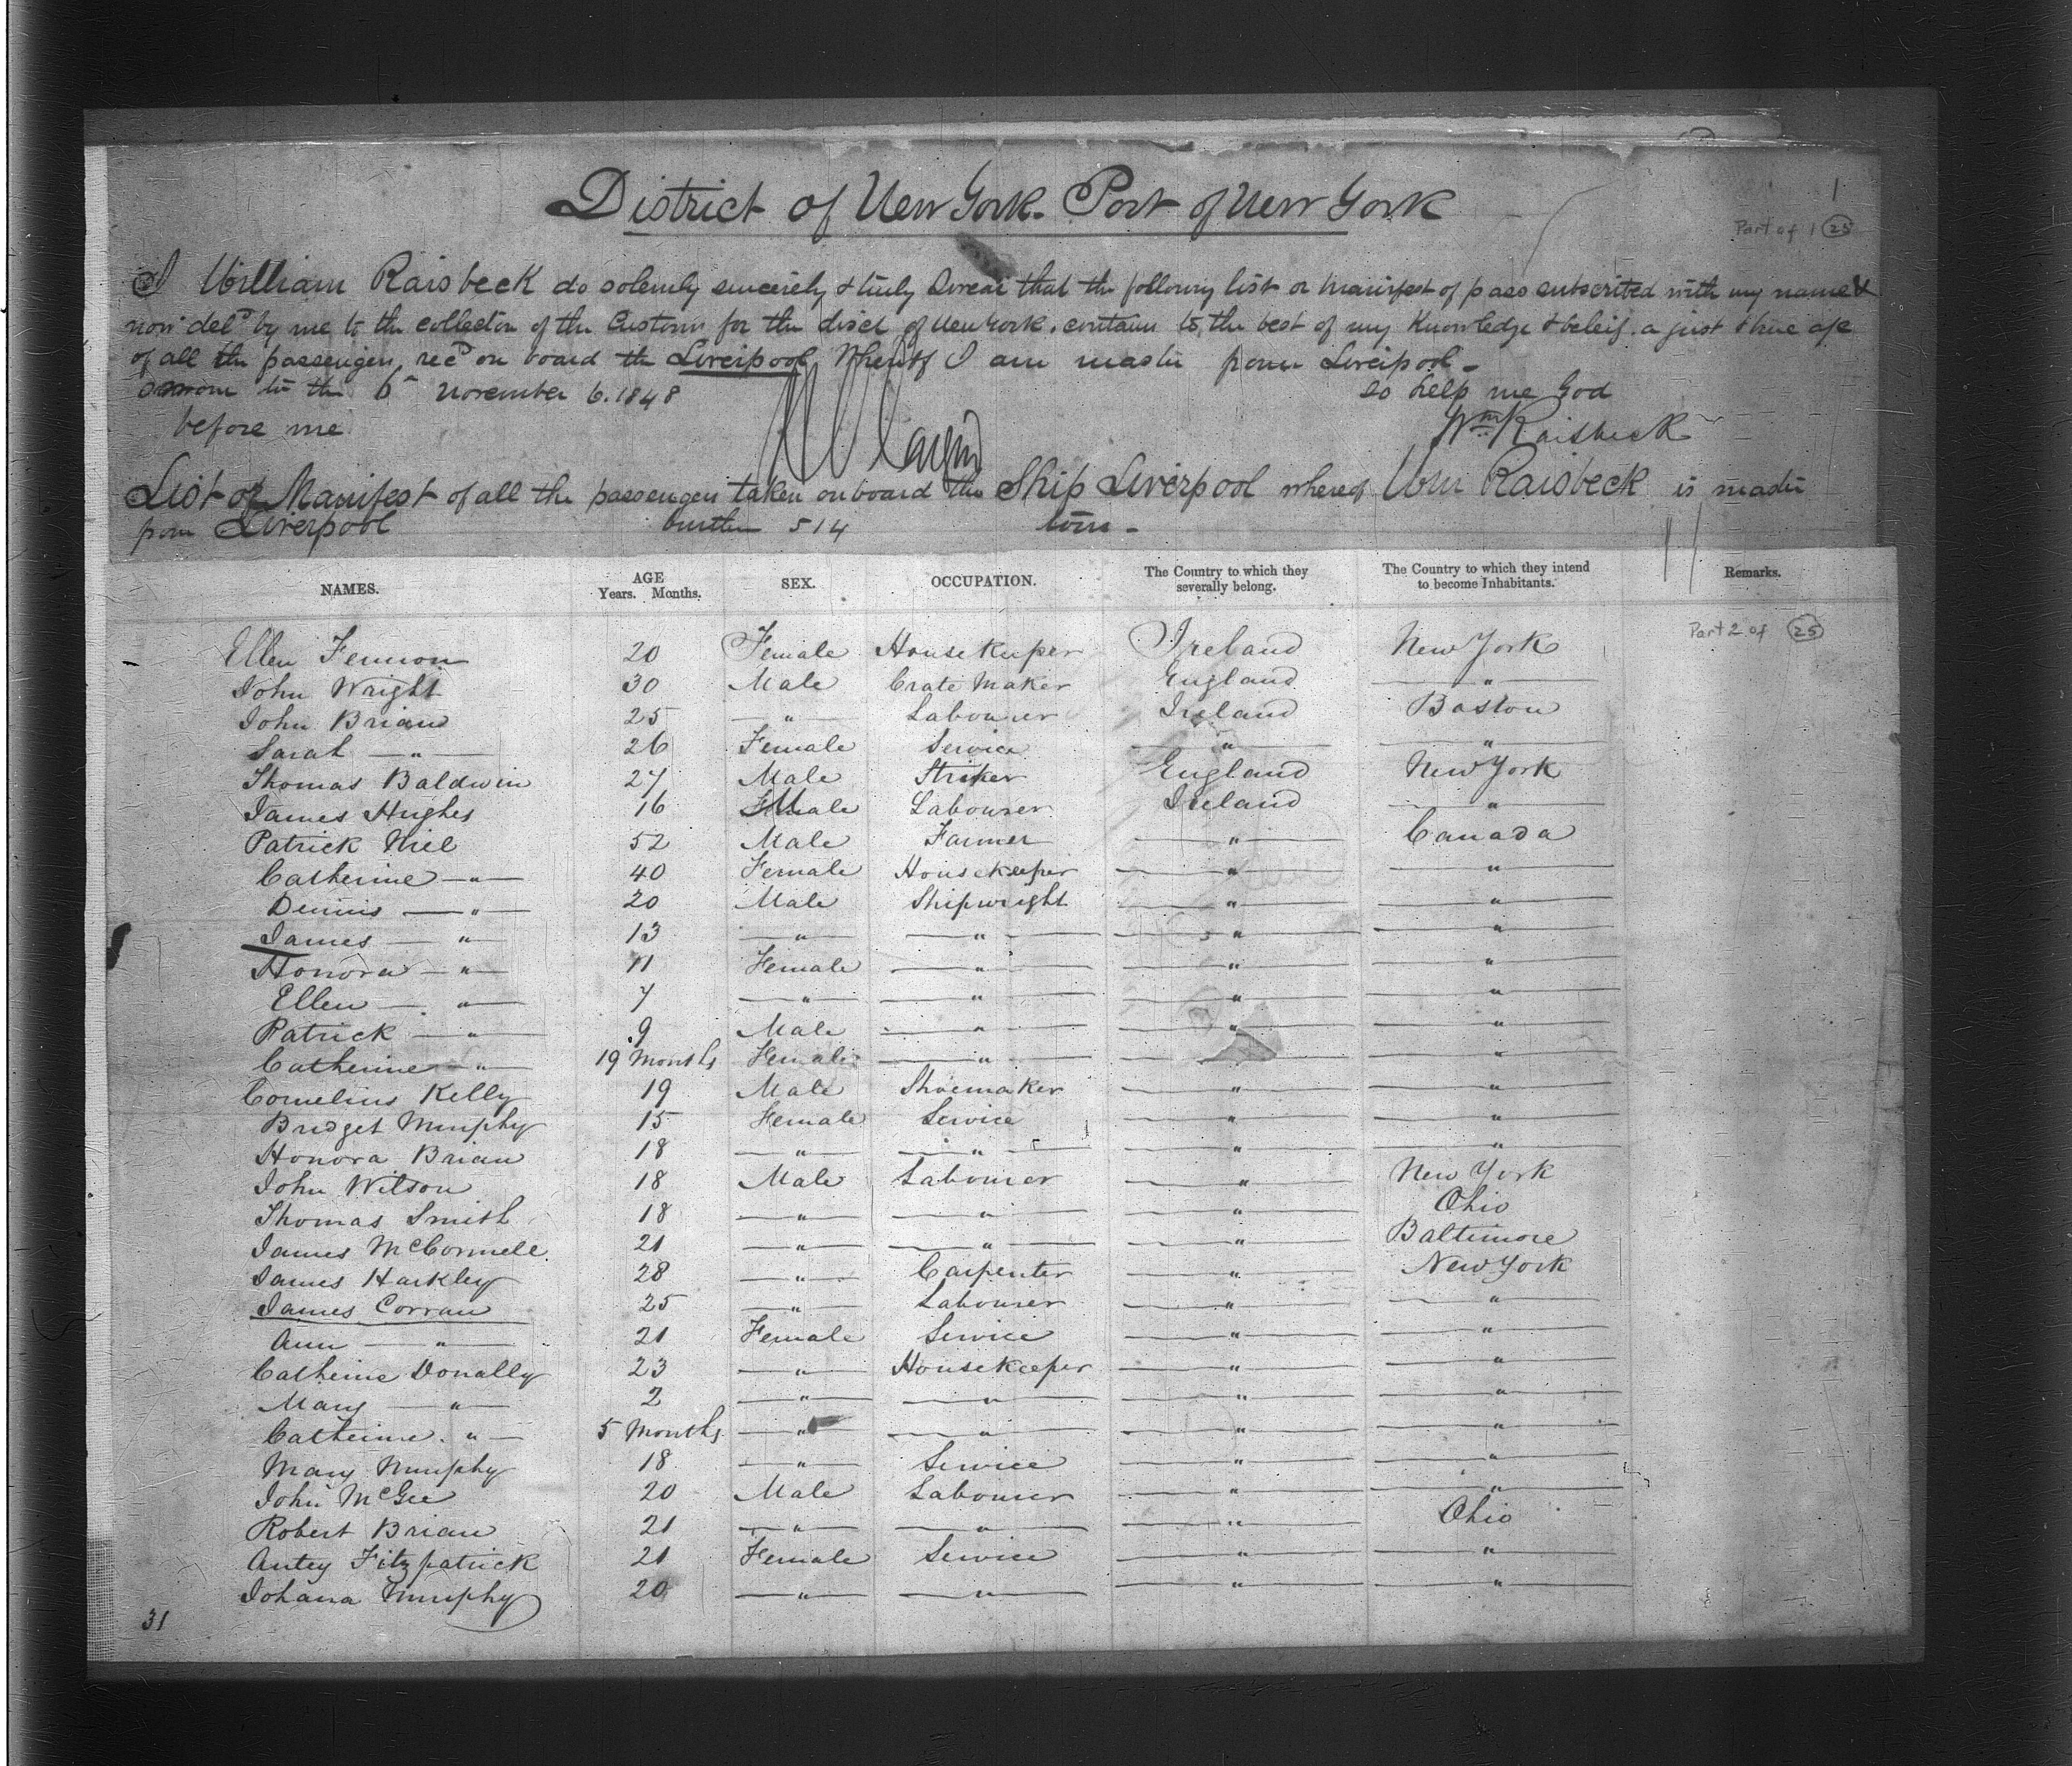 1
District of New York - Port of New York
Part of 1 25
I William Raisbeck do solemly sincerely & truly Swear that the following list or manifest of pass subscribed with my name &
now deld by me to the collector of the Customs for the disct of New York. contains to, the best of my Knowledge & beleif. a just & true
of all the passengers, recd on board the Liverpool Whereof I am master from Liverpool -
to the 6 November 6. 1848
so help me God
before me
Wm Raisbeck
List or Manifest of all the passengers taken on board the Ship Liverpool whereof Wm Raisbeck is master
from Liverpool burthen 514 tons -
NAMES. AGE Years. Months. SEX. OCCUPATION. The Country to which they severally belong. The Country to which they intend to become Inhabitants. Remarks.
Part 2 of 25
Ellen Fennon 20 Female Housekeeper Ireland New York
John Wright 30 Male Crate Maker England "
John Brian 25 " Labourer Ireland Boston
Sarah " 26 Female Service " "
Thomas Baldwin 27 Male Striker England New York
James Hughes 16 Male Labourer Ireland "
Patrick Niel 52 Male Farmer " Canada
Catherine " 40 Female Housekeeper " "
Dennis " 20 Male Shipwright " "
James " 13 " " " "
Honora " 11 Female " " "
Ellen " 7 " " " "
Patrick " 9 Male " " "
Catherine " 19 Months Female " " "
Cornelius Kelly 19 Male Shoemaker " "
Bridget Murphy 15 Female Service " "
Honora Brian 18 " " " "
John Wilson 18 Male Labourer " New York
Thomas Smith 18 " " " Ohio
James McConnell 21 " " " Baltimore
James Harkley 28 " Carpenter " New York
James Corran 25 " Labourer " "
Ann " 21 Female Service " "
Catherine Donally 23 " Housekeeper " "
Mary " 2 " " " "
Catherine " 5 Months " " " "
Mary Murphy 18 " Service " "
John McGee 20 Male Labourer " "
Robert Brian 21 " " " Ohio
Antey Fitzpatrick 21 Female Service " "
Johana Murphy 20 " " " "
31